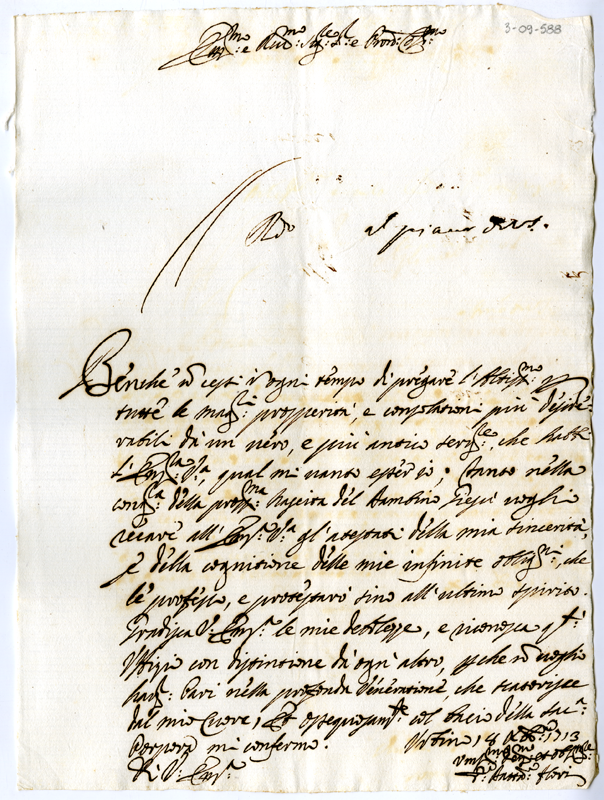 3-09-588
Em.mo e Rev.mo Sig.re e Pron:
al piano
Benche nõ cessi in ogni tempo di pregare l'Altiss.mo p
tutte le mag.ri prosperità, e consolationi più deside-
rabili da un vero, e più antico serv.re, che habbi
l'Em.za V.a, qual mi vanto esser io; tanto nella
cong.a della pross.ma Nascita del Bambino Giesù voglio
recare all'Em.za V.a gl'attestati della mia sincerità,
e della cognitione delle mie infinite oblig.ni, che
le professo, e protestarò sino all'ultimo spirito.
Gradisca V: Em.za le mie debolezze, e riconosca q.to:
Uffizio con distintione da ogni altro, pche nõ voglio
pari nella profonda Veneratione, che scaturisce
dal mio Cuore, et ossequiosam.te col bacio della Sac.a
Porpora mi confermo. Urbino 18 Xbre 1713
Di V: Em.za
Flori